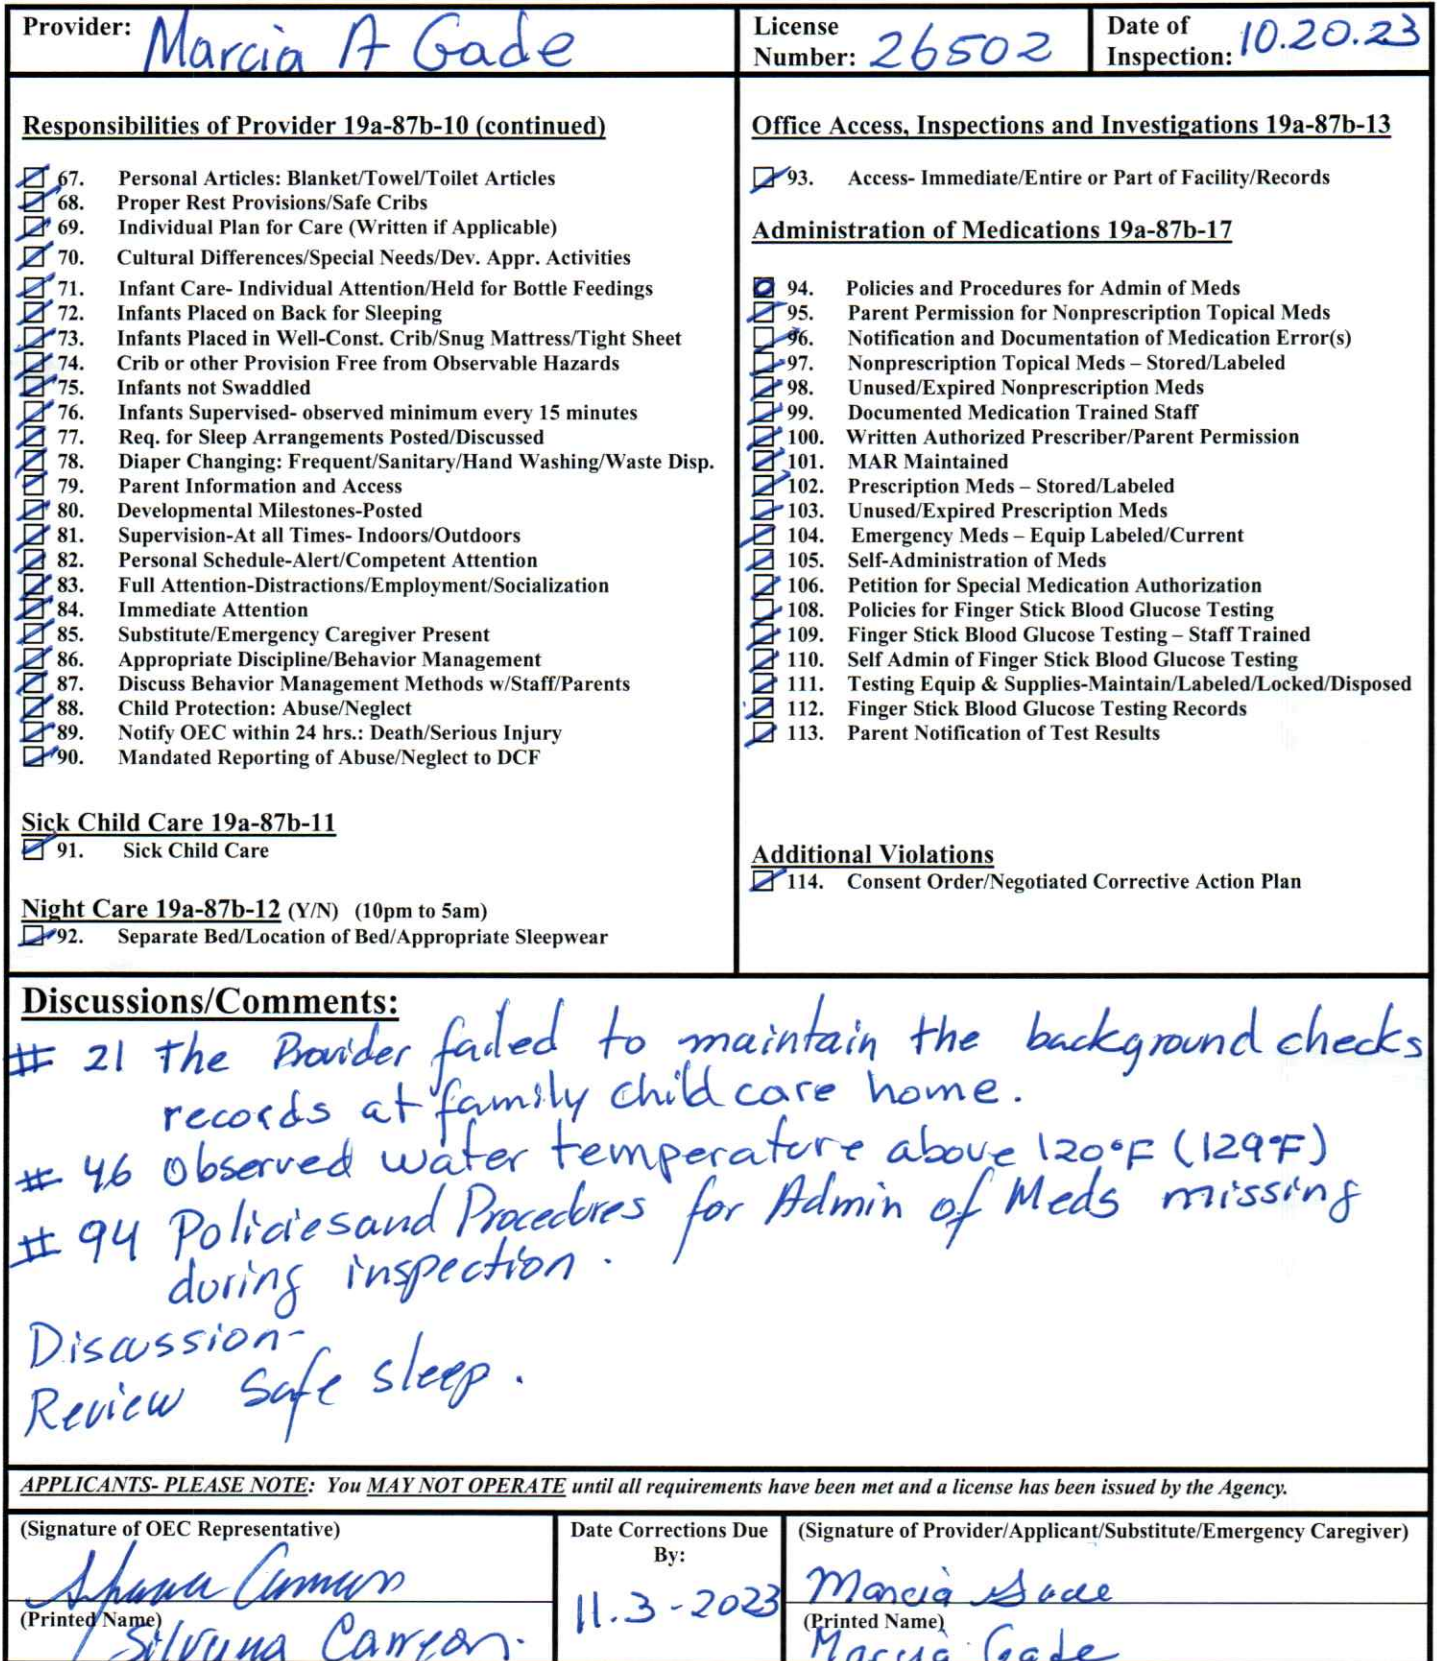 Provider: Marcia A Gade
License Number: 26502
Date of Inspection: 10.20.23
Responsibilities of Provider 19a-87b-10 (continued)
67. Personal Articles: Blanket/Towel/Toilet Articles
68. Proper Rest Provisions/Safe Cribs
69. Individual Plan for Care (Written if Applicable)
70. Cultural Differences/Special Needs/Dev. Appr. Activities
71. Infant Care- Individual Attention/Held for Bottle Feedings
72. Infants Placed on Back for Sleeping
73. Infants Placed in Well-Const. Crib/Snug Mattress/Tight Sheet
74. Crib or other Provision Free from Observable Hazards
75. Infants not Swaddled
76. Infants Supervised- observed minimum every 15 minutes
77. Req. for Sleep Arrangements Posted/Discussed
78. Diaper Changing: Frequent/Sanitary/Hand Washing/Waste Disp.
79. Parent Information and Access
80. Developmental Milestones-Posted
81. Supervision-At all Times- Indoors/Outdoors
82. Personal Schedule-Alert/Competent Attention
83. Full Attention-Distractions/Employment/Socialization
84. Immediate Attention
85. Substitute/Emergency Caregiver Present
86. Appropriate Discipline/Behavior Management
87. Discuss Behavior Management Methods w/Staff/Parents
88. Child Protection: Abuse/Neglect
89. Notify OEC within 24 hrs.: Death/Serious Injury
90. Mandated Reporting of Abuse/Neglect to DCF
Sick Child Care 19a-87b-11
91. Sick Child Care
Night Care 19a-87b-12 (Y/N) (10pm to 5am)
92. Separate Bed/Location of Bed/Appropriate Sleepwear
Office Access, Inspections and Investigations 19a-87b-13
93. Access- Immediate/Entire or Part of Facility/Records
Administration of Medications 19a-87b-17
94. Policies and Procedures for Admin of Meds
95. Parent Permission for Nonprescription Topical Meds
96. Notification and Documentation of Medication Error(s)
97. Nonprescription Topical Meds – Stored/Labeled
98. Unused/Expired Nonprescription Meds
99. Documented Medication Trained Staff
100. Written Authorized Prescriber/Parent Permission
101. MAR Maintained
102. Prescription Meds – Stored/Labeled
103. Unused/Expired Prescription Meds
104. Emergency Meds – Equip Labeled/Current
105. Self-Administration of Meds
106. Petition for Special Medication Authorization
108. Policies for Finger Stick Blood Glucose Testing
109. Finger Stick Blood Glucose Testing – Staff Trained
110. Self Admin of Finger Stick Blood Glucose Testing
111. Testing Equip & Supplies-Maintain/Labeled/Locked/Disposed
112. Finger Stick Blood Glucose Testing Records
113. Parent Notification of Test Results
Additional Violations
114. Consent Order/Negotiated Corrective Action Plan
Discussions/Comments:
# 21 The Provider failed to maintain the background checks
records at family child care home.
# 46 Observed water temperature above 120°F (129°F)
# 94 Policies and Procedures for Admin of Meds missing
during inspection.
Discussion-
Review Safe sleep.
APPLICANTS- PLEASE NOTE: You MAY NOT OPERATE until all requirements have been met and a license has been issued by the Agency.
(Signature of OEC Representative)
(Printed Name)
Silvana
Date Corrections Due
By:
11.3-2023
(Signature of Provider/Applicant/Substitute/Emergency Caregiver)
Marcia Gade
(Printed Name)
Marcia Gade